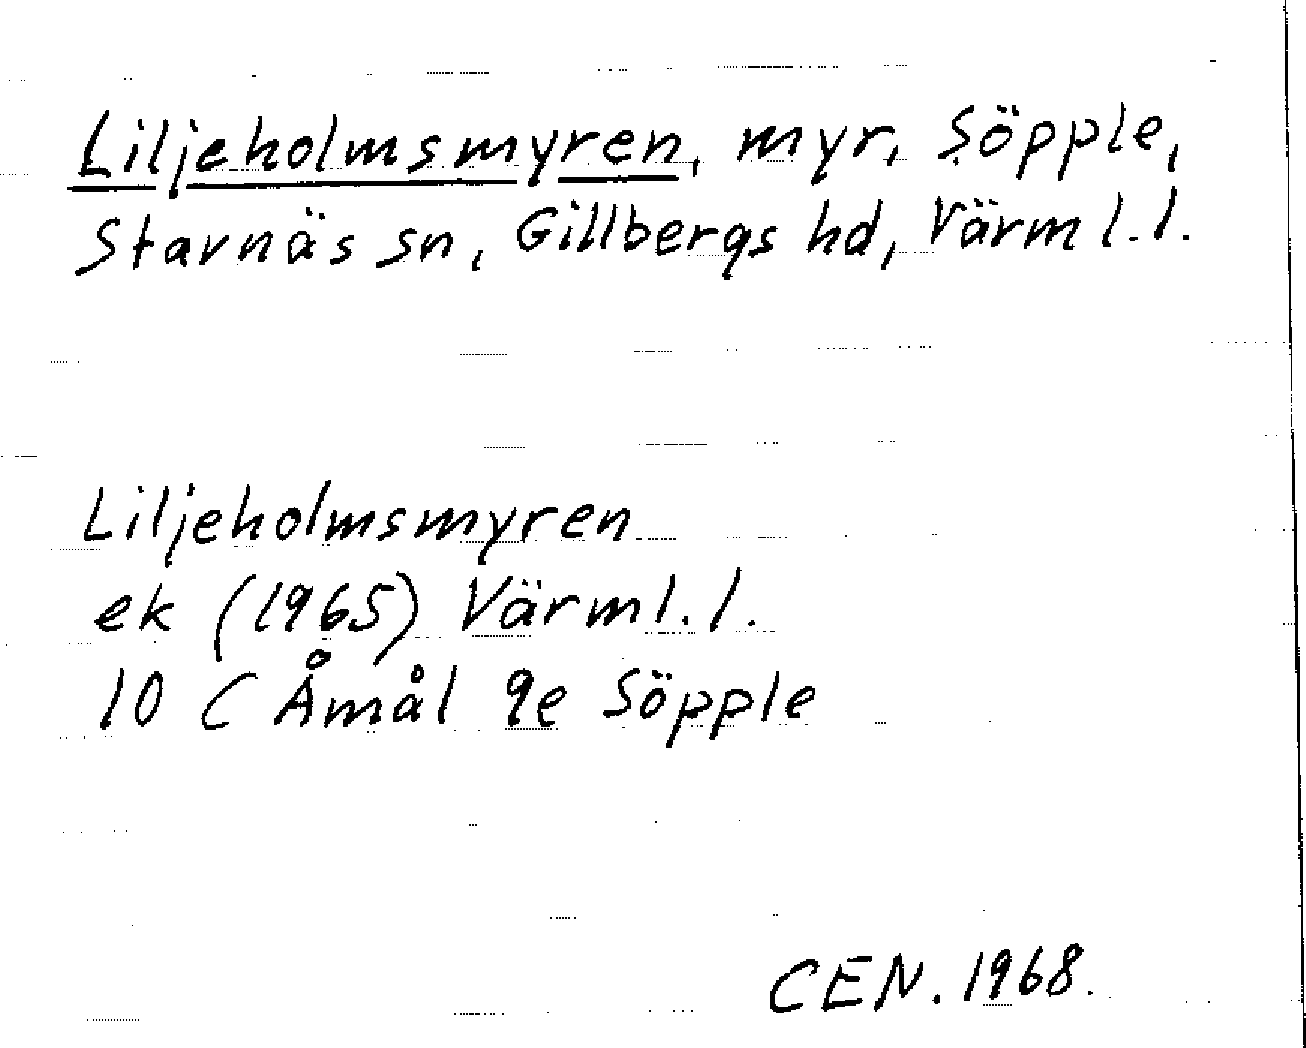 Liljeholmsmyren, myr, Söpple,
Stavnäs sn, Gillbergs hd, Värml.l.
Liljeholmsmyren
ek (1965) Värml.l.
10 C Åmål 9e Söpple
CEN. 1968.